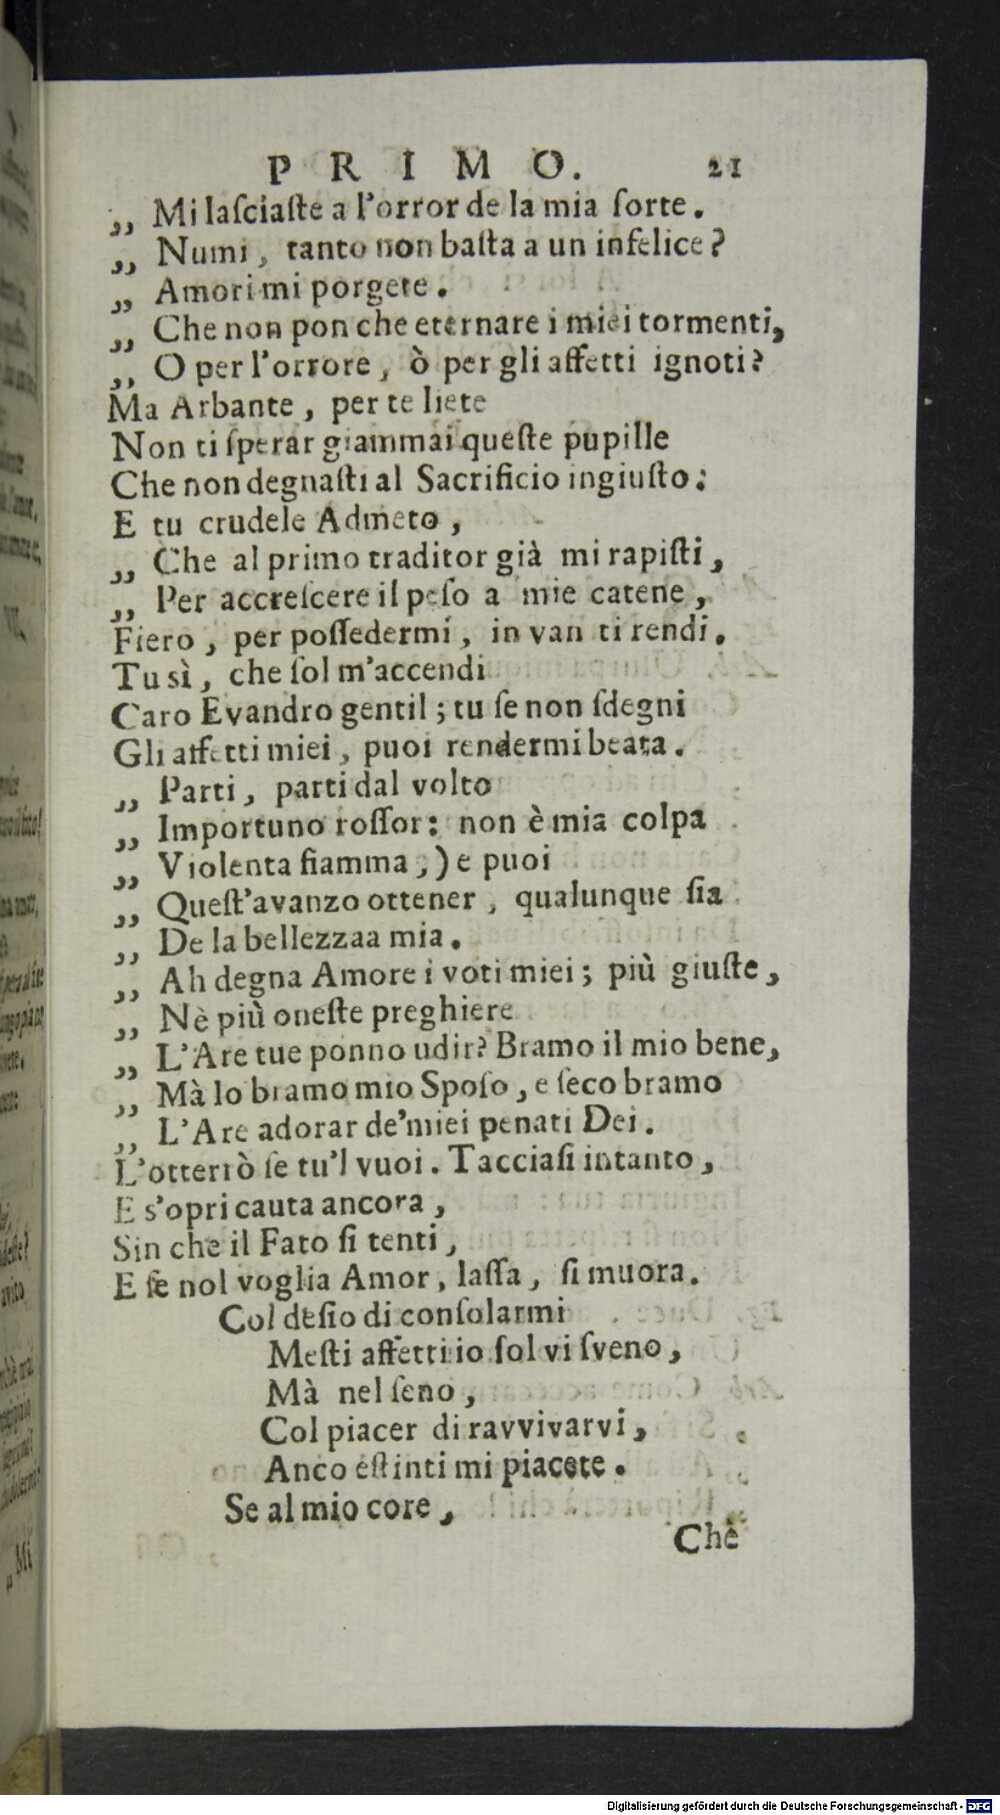 P R I M O. 21
,, Mi laſciaſte a l'orror de la mia ſorte.
,, Numi, tanto non baſta a un infelice?
,, Amori mi porgete.
,, Che non pon che eternare i miei tormenti,
,, O per l'orrore, ò per gli affetti ignoti?
Ma Arbante, per te liete
Non ti ſperar giammai queſte pupille
Che non degnaſti al Sacrificio ingiuſto:
E tu crudele Admeto,
,, Che al primo traditor già mi rapiſti,
,, Per accreſcere il peſo a mie catene,
Fiero, per poſſedermi, in van ti rendi.
Tu sì, che ſol m'accendi
Caro Evandro gentil; tu ſe non ſdegni
Gli affetti miei, puoi rendermi beata.
,, Parti, parti dal volto
,, Importuno roſſor: non è mia colpa
,, Violenta fiamma,) e puoi
,, Queſt'avanzo ottener, qualunque ſia
,, De la bellezzaa mia.
,, Ah degna Amore i voti miei; più giuſte,
,, Nè più oneſte preghiere
,, L'Are tue ponno udir? Bramo il mio bene,
,, Mà lo bramo mio Spoſo, e ſeco bramo
,, L'Are adorar de'miei penati Dei.
L'otterrò ſe tu'l vuoi. Tacciaſi intanto,
E s'opri cauta ancora,
Sin che il Fato ſi tenti,
E ſe nol voglia Amor, laſſa, ſi muora.
Col deſio di conſolarmi
Meſti affetti io ſol vi ſveno,
Mà nel ſeno,
Col piacer di ravvivarvi,
Anco eſtinti mi piacete.
Se al mio core,
Chè
Digitalisierung gefördert durch die Deutsche Forschungsgemeinschaft - DFG